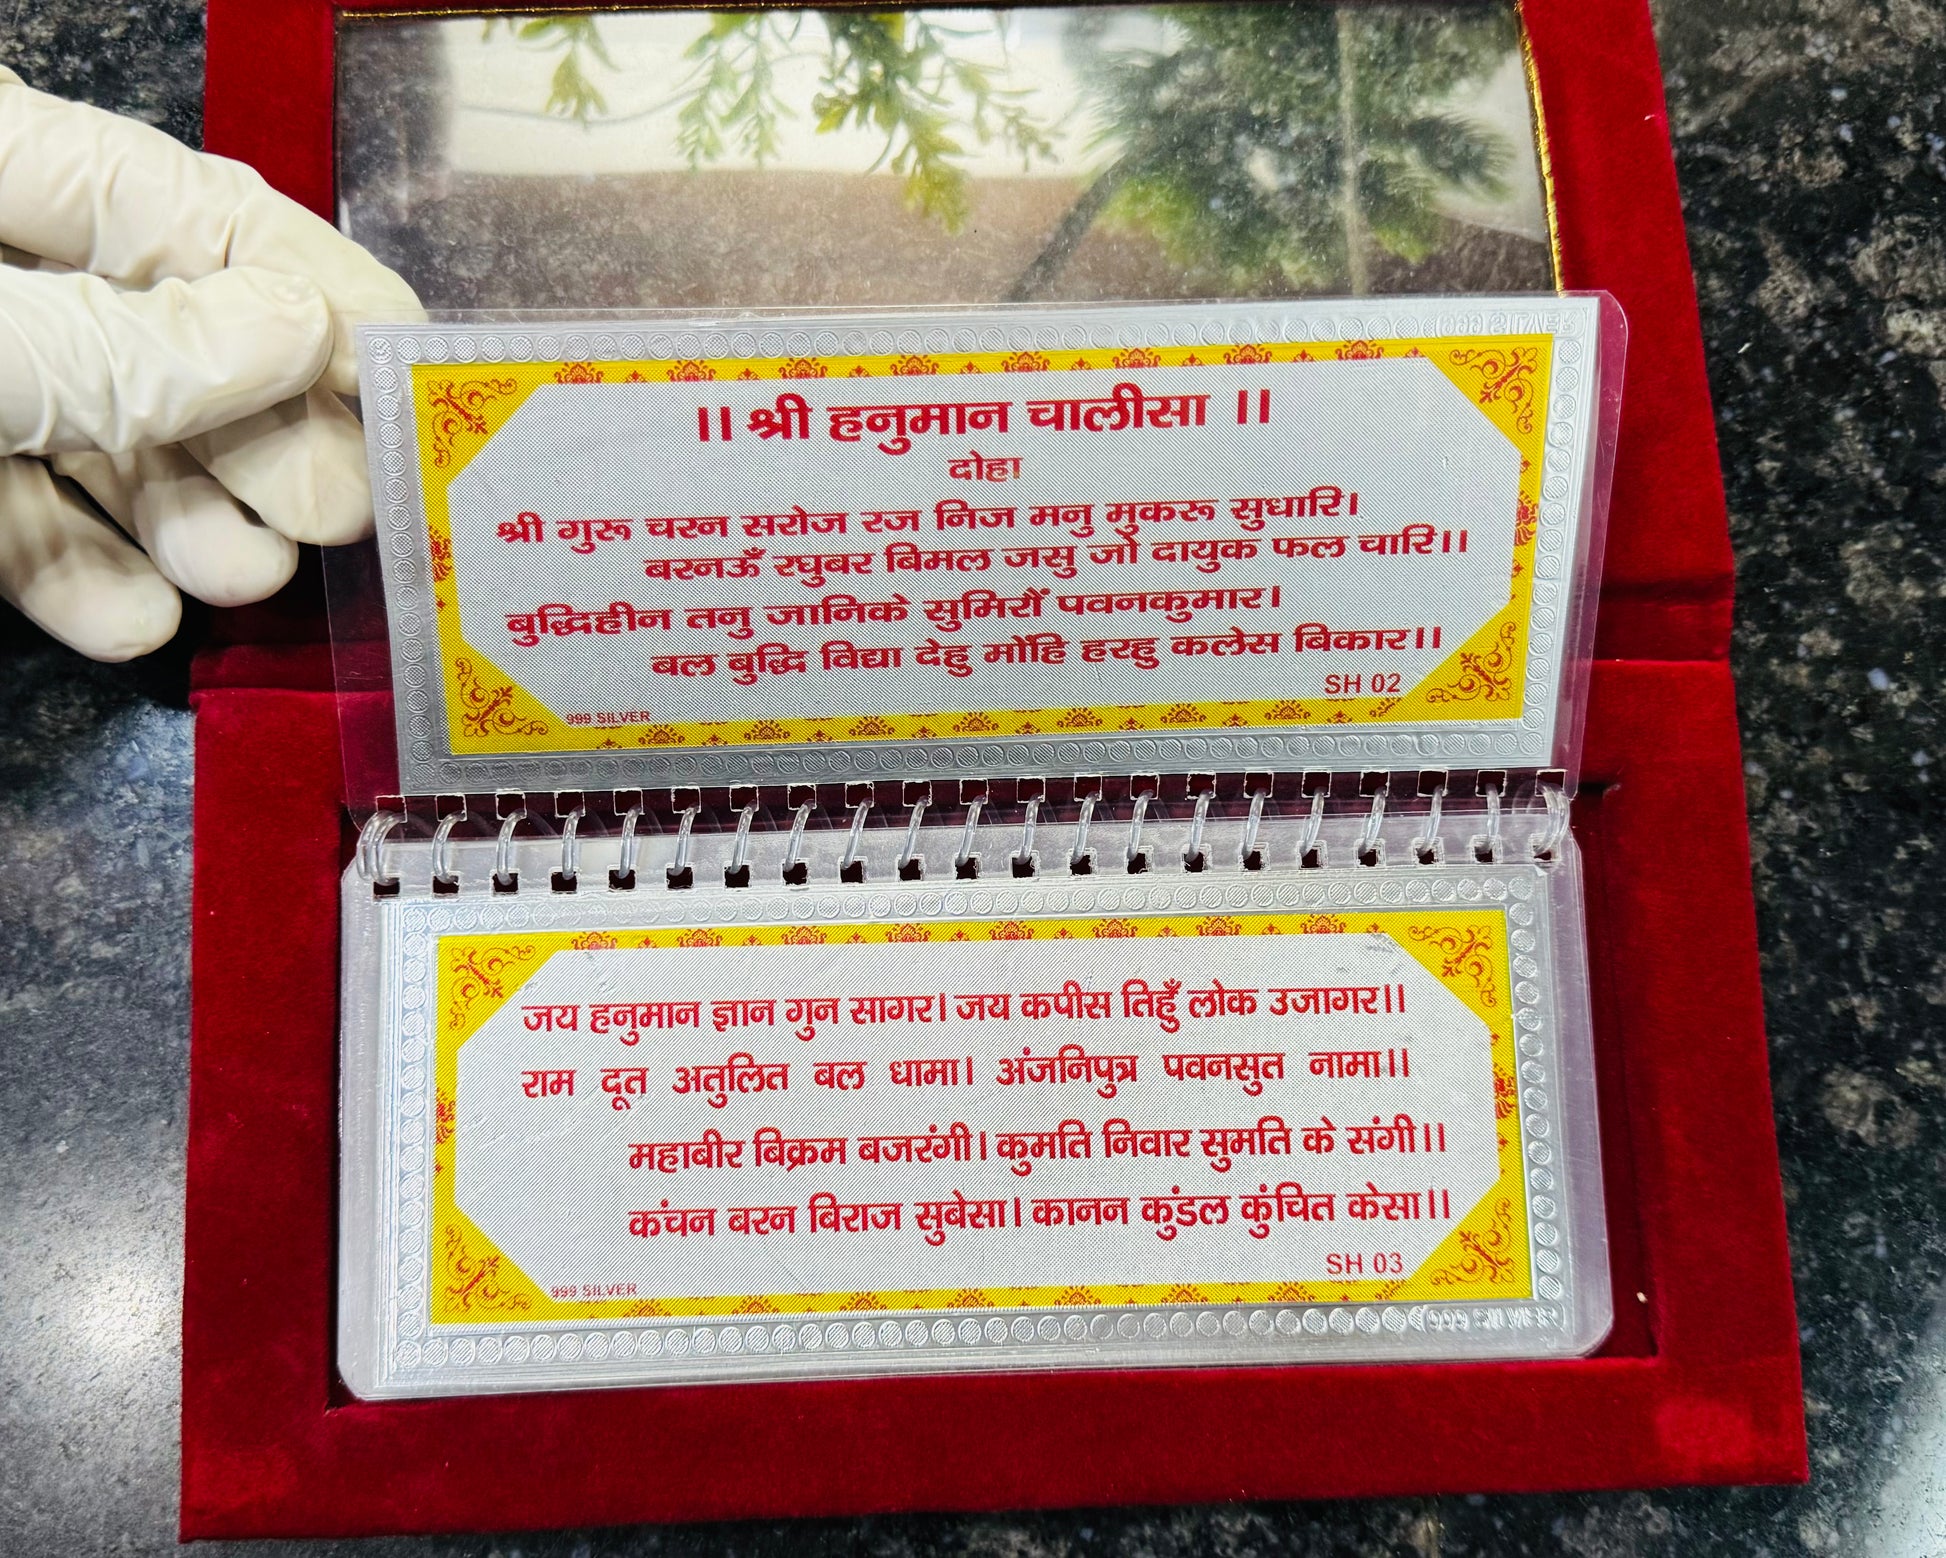 999 SILVER
।। श्री हनुमान चालीसा ।।
दोहा
श्री गुरू चरन सरोज रज निज मनु मुकरू सुधारि।
बरनऊँ रघुबर बिमल जसु जो दायुक फल चारि।।
बुद्धिहीन तनु जानिके सुमिरौं पवनकुमार।
बल बुद्धि विद्या देहु मोंहि हरहु कलेस बिकार।।
SH 02
999 SILVER
जय हनुमान ज्ञान गुन सागर। जय कपीस तिहुँ लोक उजागर।।
राम दूत अतुलित बल धामा। अंजनिपुत्र पवनसुत नामा।।
महाबीर बिक्रम बजरंगी। कुमति निवार सुमति के संगी।।
कंचन बरन बिराज सुबेसा। कानन कुंडल कुंचित केसा।।
SH 03
999 SILVER
999 SILVER